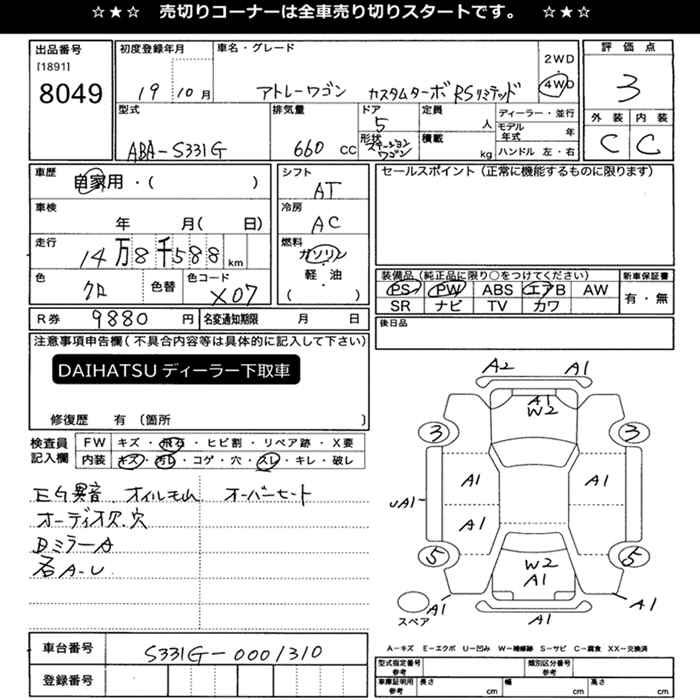 ☆★☆ 売切りコーナーは全車売り切りスタートです。 ☆★☆
出品番号
[1891]
8049
初度登録年月
19 10月
車名・グレード
アトレーワゴン カスタムターボRSリミテッド
2WD
4WD
評価点
3
外装 内装
C C
型式
ABA-S331G
排気量
660 cc
ドア
5
形状
ステーションワゴン
定員
人
積載
kg
ディーラー・並行
モデル年式 年
ハンドル 左・右
車歴
自家用・( )
車検
年 月( 日)
走行
14万8千588km
色
クロ
色替
色コード
X07
シフト
AT
冷房
AC
燃料
ガソリン
軽・油
( ・ )
セールスポイント(正常に機能するものに限ります)
装備品(純正品に限り○をつけてください)
PS PW ABS エアB AW
SR ナビ TV カワ
新車保証書
有・無
R券 9880 円
名変通知期限 月 日
後日品
注意事項申告欄(不具合内容等は具体的に記入して下さい)
DAIHATSU ディーラー下取車
修復歴 有 〔箇所 〕
検査員記入欄
FW キズ・飛石・ヒビ割・リペア跡・X要
内装 キズ・汚れ・コゲ・穴・スレ・キレ・破レ
Eg異音 オイルもれ オーバーヒート
オーディオ欠.穴
DミラーA
右A-U
A2 A1
A1
W2
3 3
A1 A1
UA1
A1
5 5
W2
A1
スペア
A1 A1
A1
A-キズ E-エクボ U-凹み W-補修跡 S-サビ C-腐食 XX-交換済
車台番号 S331G-0001310
登録番号
型式指定番号 参考
類別区分番号 参考
車庫証明用 参考
長さ cm 幅 cm 高さ cm